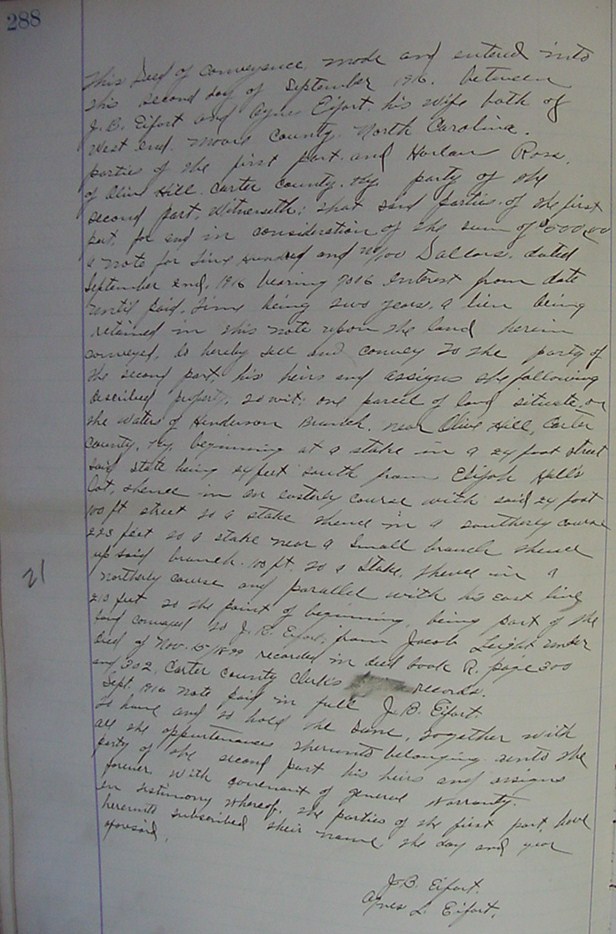 288
This Deed of conveyence, made and entered into
this second day of September 1916. between
J.B. Eifort and Agnes Eifort his wife both of
West End. Moore County North Carolina.
parties of the first part and Harlan Rose,
of Olive Hill. Carter County. Ky. party of the
second part. Witnesseth: that said parties of the first
part, for and in consideration of the sum of
a note for Hundred and no/100 Dollars. dated
September 2nd, 1916 bearing interest from date
until paid. time being two years. a lien being
retained in this note upon the land herein
conveyed, do hereby sell and convey to the party of
the second part his heirs and assigns the following
described property, to wit: one parcel of land situate, on
the waters of Henderson Branch. near Olive Hill, Carter
County. Ky. beginning at a stake in a 24 foot street
said stake being 24 feet south from Elijah Hall's
lot, thence in an easterly course with said 24 foot
100 ft street to a stake thence in a southerly course
223 feet to a stake near a small branch thence
up said branch. 100 ft. to a stake, thence in a
21
northerly course and parallel with his east line
210 feet to the point of beginning, being part of the
land conveyed to J.B. Eifort, from Jacob Leight under
deed of Nov. 15- 1899 recorded in deed book R. page 300
and 302. Carter County Clerk's records.
Sept. 1916 note paid in full J.B. Eifort.
To have and to hold the same, together with
all the appurtenances thereunto belonging unto the
party of the second part his heirs and assigns
forever with covenant of general warranty.
In testimony whereof. the parties of the first part, have
hereunto subscribed their name the day and year
aforesaid.
J.B. Eifort.
Agnes L. Eifort.